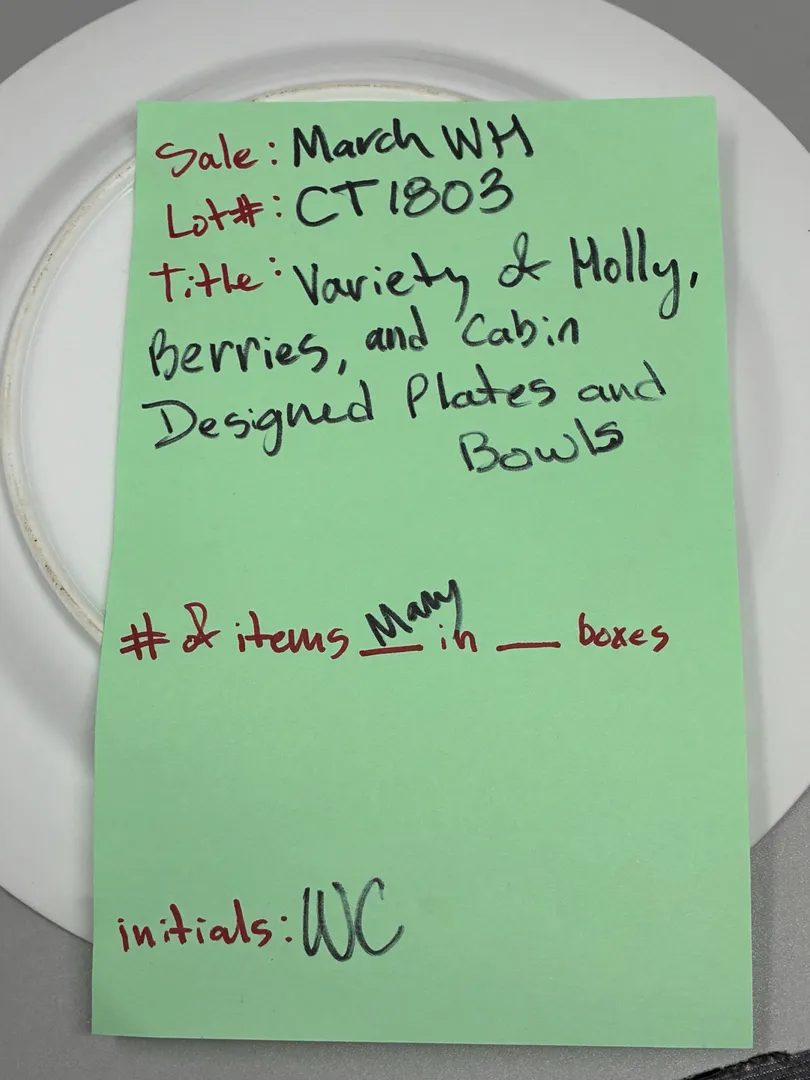 Sale: March WH
Lot#: CT1803
Title: Variety of Holly,
Berries, and Cabin
Designed Plates and
Bowls
# of items Many in __ boxes
initials: WC